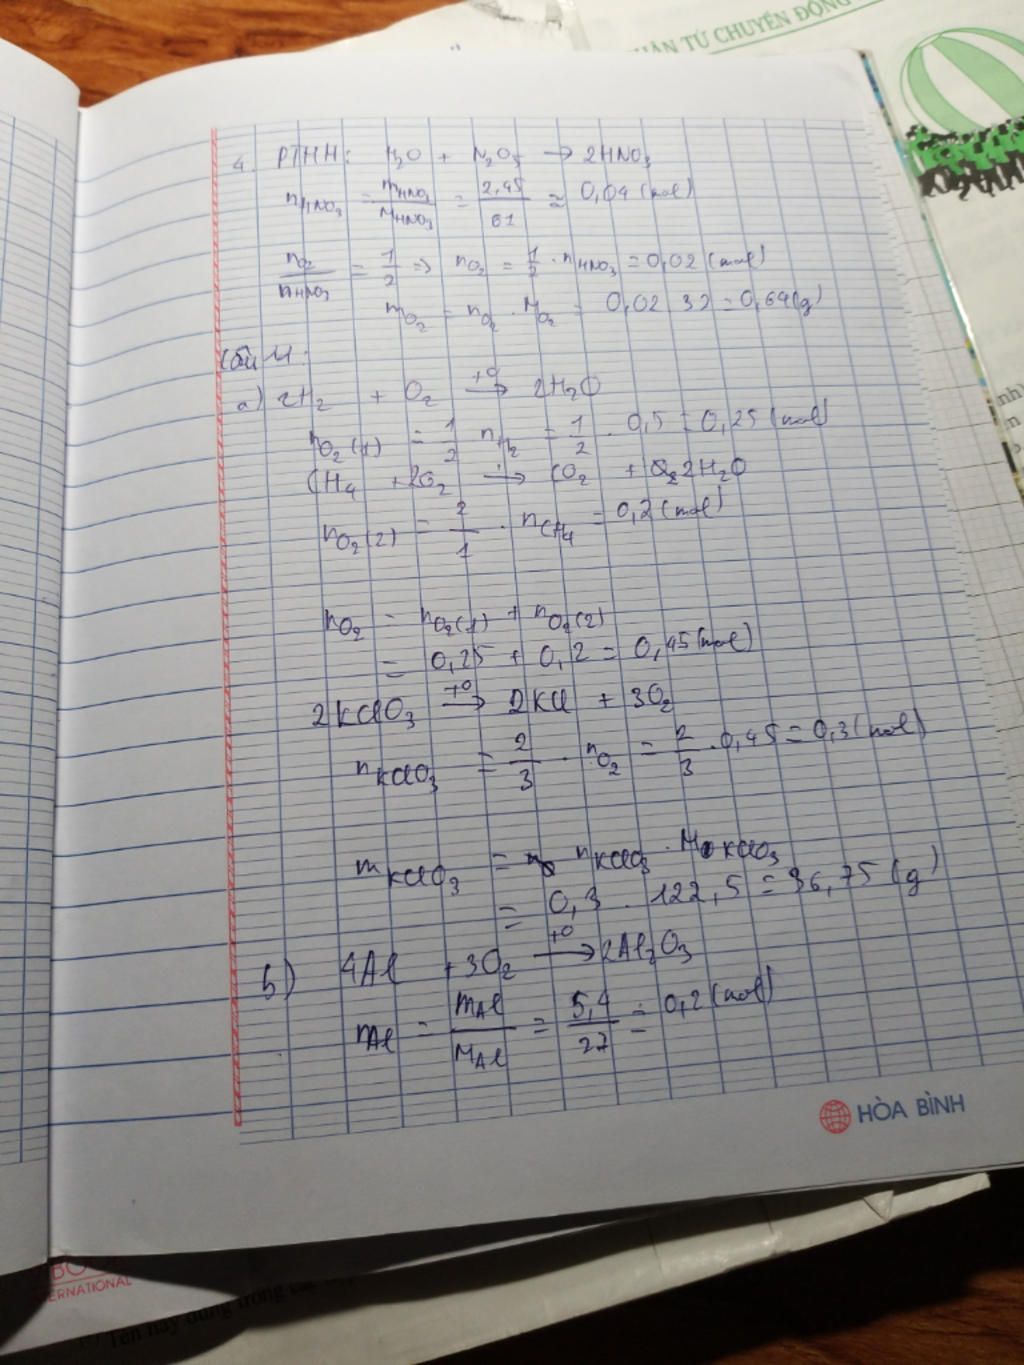 HÂN TỬ CHUYỂN ĐỘNG
4. PTHH: H2O + N2O5 → 2HNO3
nHNO3 = mHNO3/MHNO3 = 2,45/61 ≈ 0,04 (mol)
nO2/nHNO3 = 1/2 => nO2 = 1/2 . nHNO3 = 0,02 (mol)
mO2 = nO2 . MO2 = 0,02 . 32 = 0,64 (g)
a) 2H2 + O2 →(t°) 2H2O
nO2(1) = 1/2 nH2 = 1/2 . 0,5 = 0,25 (mol)
CH4 + 2O2 → CO2 + 2H2O
nO2(2) = 2/1 . nCH4 = 0,2 (mol)
nO2 = nO2(1) + nO2(2)
= 0,25 + 0,2 = 0,45 (mol)
2KClO3 →(t°) 2KCl + 3O2
nKClO3 = 2/3 . nO2 = 2/3 . 0,45 = 0,3 (mol)
mKClO3 = nKClO3 . MKClO3
= 0,3 . 122,5 = 36,75 (g)
b) 4Al + 3O2 →(t°) 2Al2O3
nAl = mAl/MAl = 5,4/27 = 0,2 (mol)
HÒA BÌNH